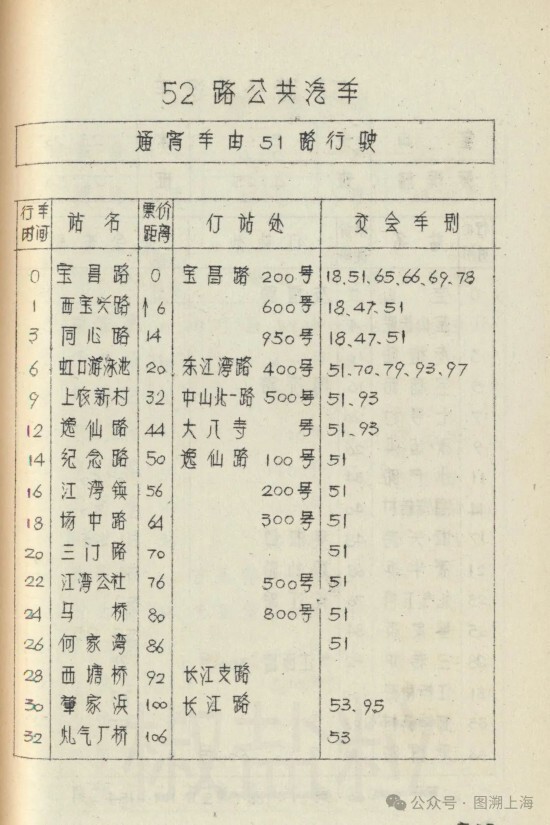 52路公共汽车
通宵车由51路行驶
行车时间 站名 票价距离 停站处 交会车别
0 宝昌路 0 宝昌路 200号 18.51.65.66.69.78
1 西宝兴路 ↑6 600号 18.47.51
3 同心路 14 950号 18.47.51
6 虹口游泳池 20 东江湾路 400号 51.70.79.93.97
9 上农新村 32 中山北一路 500号 51.93
12 逸仙路 44 大八寺 号 51.93
14 纪念路 50 逸仙路 100号 51
16 江湾镇 56 200号 51
18 场中路 64 300号 51
20 三门路 70 51
22 江湾公社 76 500号 51
24 马桥 80 800号 51
26 何家湾 86 51
28 西塘桥 92 长江支路
30 肇家浜 100 长江路 53.95
32 煤气厂桥 106 53
公众号·图溯上海